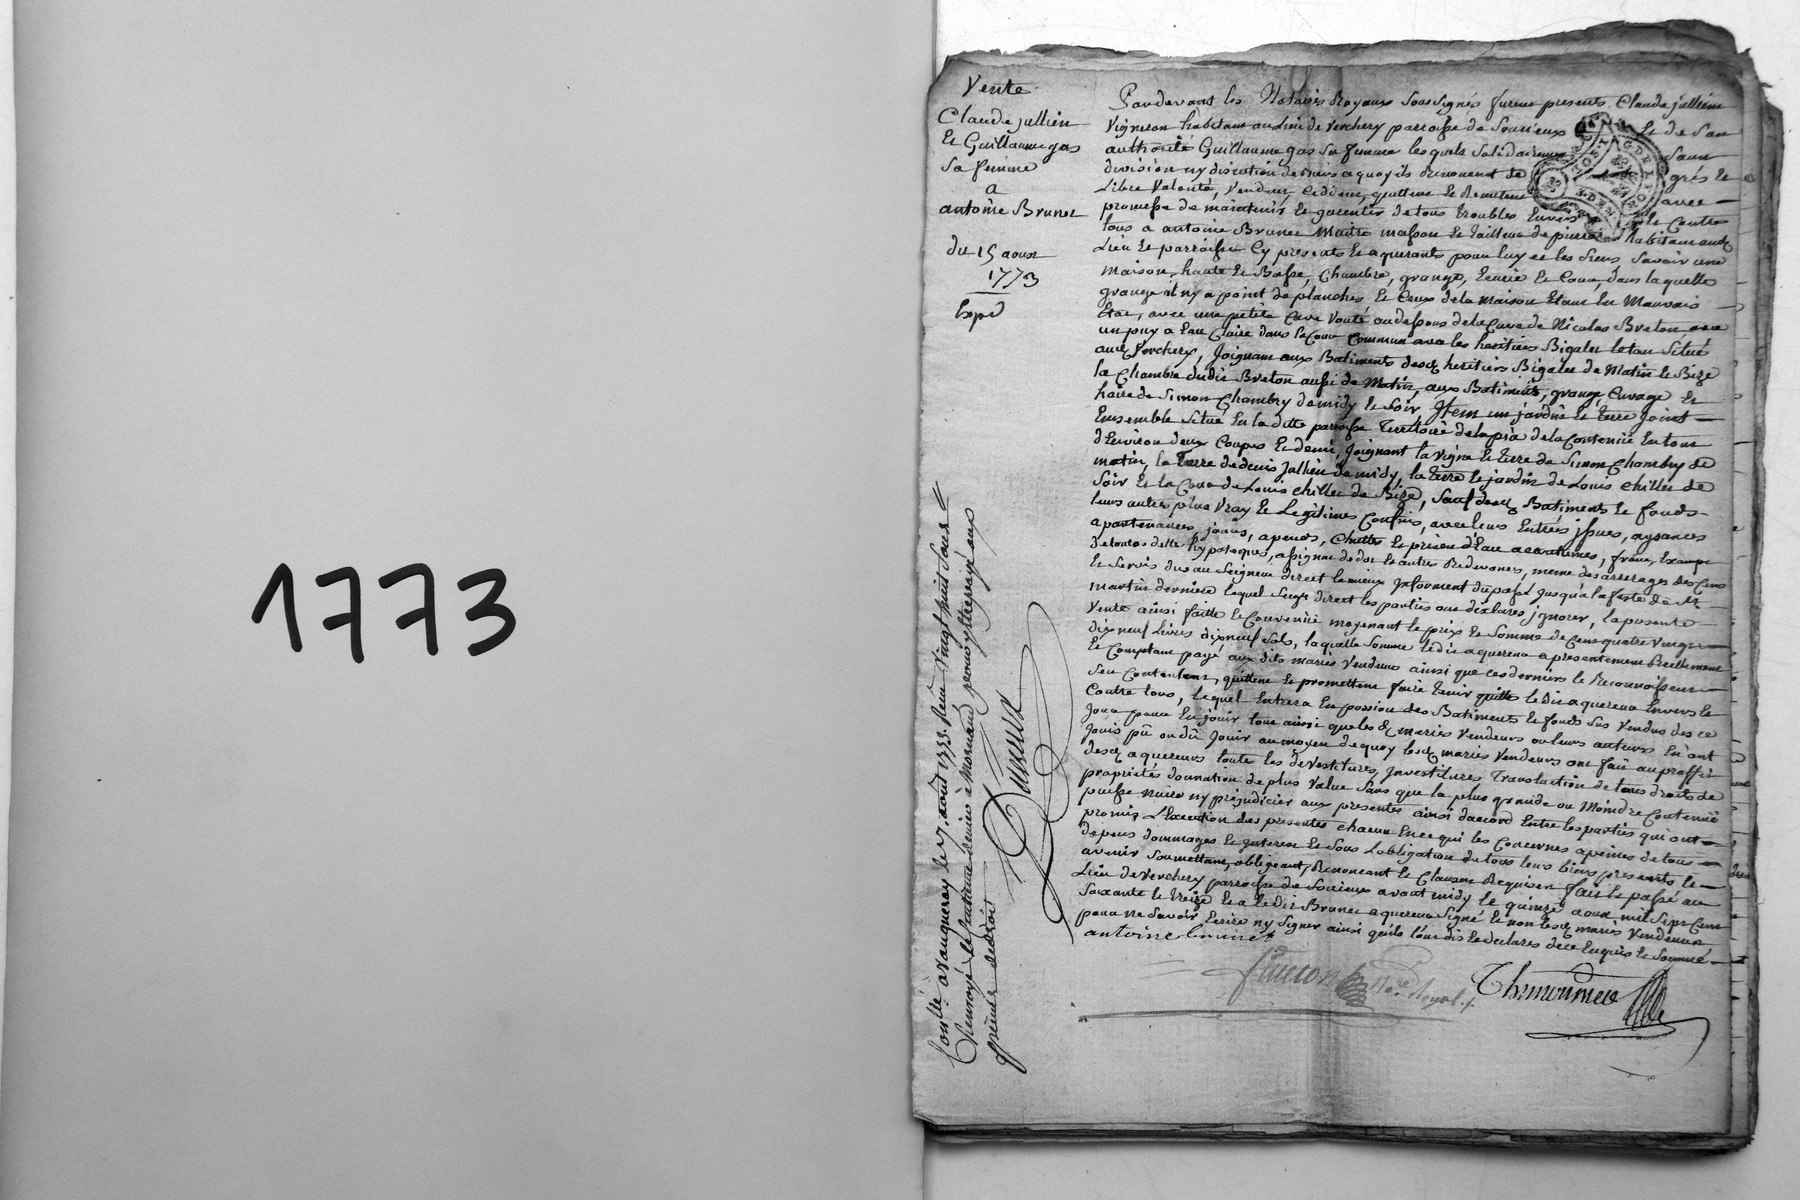 1773
Vente
Claude jullien
Et Guillaume gas
Sa femme
a
antoine Brunet
du 15 aoust
1773
Expé
Pardevant les Notaires Royaux Soussignés furent presents Claude jullien
Vigneron habitant au Lieu de Verchery parroisse de Sourieux Et de Son
authorité Guillaume gas Sa femme lesquels Solidairement Sans
division ny discution de biens a quoy ils Renoncent de grés Et
Libre Volonté, Vendent, Cedent, quittent Et Remettent avec
promesse de maintenir Et garentir de tous troubles Envers Et Contre
tous a antoine Brunet Maitre masson Et tailleur de pierre habitant audt
Lieu Et parroisse Cy present Et aquerants pour luy et les Siens Savoir une
Maison, haute Et Basse, Chambre, grange, Ecurie Et Cour, dans laquelle
grange il ny a point de planches Et Ceux de la maison Etant En Mauvais
Etat, avec une petite Cave Vouté au dessous de la Cuve de Nicolas Breton avec
un puy a Eau Claire dans le Cour Commun avec les heritiers Bigalet le tau Situé
audt Verchery, Joignant aux Batiments desdt heritiers Bigalet de Matin Et Bize
la Chambre dudit Breton aussi de Matin, aux Batiments, grange, Cuvage Et
haire de Simon Chambry de midy Et Soir Jtem un jardin Et terre joint
Ensemble Situé En la ditte parroisse Territoire de la pra de la Contenüe En tout
d'Environ deux Coupes Et demi, Joignant la Vigne Et terre de Simon Chambry de
matin, la terre de denis Jullien de midy, la terre Et jardin de Louis Chillet de
Soir Et la Cour de Louis Chillet de Bize, Sauf desdt Batiments Et fonds
leurs autre plus Vray Et Legitimes Confins, avec leurs Entrées jssues, aysances
apartenances, joints, apends, Chutes Et prises d'Eau acoutumés, franc, Exempt
de toutes dette hypoteques, assignat de dot Et autres Redevances, meme des arrerages des Cens
Et Servis dus au Seigneur direct Lamieux Jnforment du passé jusqu'a la feste de St
Martin derniere lequel Seigr direct les parties ont déclarés jgnorer, la presente
Vente ainsi faitte Et Convenüe moyenant le prix Et Somme de Cent quatre Vingt
dixneuf Livres dixneuf Sols, laquelle Somme ledit aquereur a presentement Reellement
Et Comptant payé aux dits mariés Vendeurs ainsi que ces derniers le Reconnoissent
Sen Contentent, quittent Et promettent faire tenir quitte ledit aquereur Envers Et
Contre tous, lequel Entrera En possion des Batiments Et fonds Sus Vendus des ce
Jour pour En jouir tout ainsi que lesdt mariés Vendeurs ou leurs auteurs En ont
Jouis pû ou dû Jouir au moyen de quoy lesdt mariés Vendeurs ont fait au proffit
desdt aquereurs toute les devestitures, Jnvestitures Translation de tous droits de
proprietés donnation de plus Value Sans que la plus grande ou Moindre Contenüe
puisse nuire ny préjudicier aux presentes ainsi daccord Entre les parties qui ont
promis L'Execution des presentes chacun En ce qui les Concernes a peines de tous
depens dommages Et jnterest Et Sous L'obligation de tous leurs biens presents Et
avenir Soumettant, obligeant, Renonceant Et Clausant Requises fait Et passé au
Lieu de Verchery parroisse de Sourieux avant midy le quinze aoust mil Sept Cent
Soixante Et treize Et a Ledit Brunet aquereur Signé Et non lesdt mariés Vendeurs
pour ne Savoir Ecrire ny Signer ainsi quils l'ont dit Et declarés dece Enquis Et Sommé
antoine brunet
Notre Royal